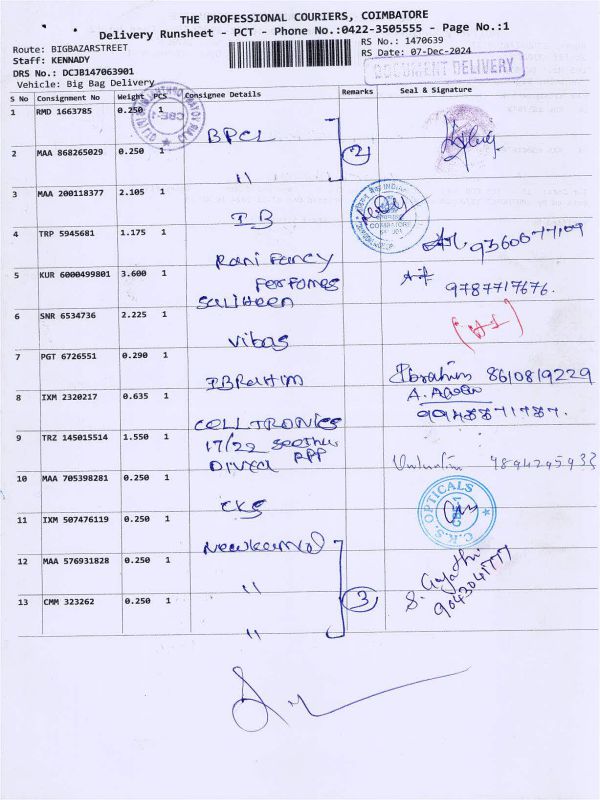 THE PROFESSIONAL COURIERS, COIMBATORE
Delivery Runsheet - PCT - Phone No.:0422-3505555 - Page No.:1
Route: BIGBAZARSTREET
RS No.: 1470639
Staff: KENNADY
RS Date: 07-Dec-2024
DRS No.: DCJB147063901
DOCUMENT DELIVERY
Vehicle: Big Bag Delivery
S No Consignment No Weight PCS Consignee Details Remarks Seal & Signature
1 RMD 1663785 0.250 1 BPCL
2 MAA 868265029 0.250 1 " 2
3 MAA 200118377 2.105 1 IB
INDIAN
COIMBATORE
4 TRP 5945681 1.175 1 Rani Fancy 9360077109
5 KUR 6000499801 3.600 1 Perfomes
Saliheen 9787717676.
6 SNR 6534736 2.225 1 Vibas
7 PGT 6726551 0.290 1 IBRAHIM Ibrahim 8610819229
8 IXM 2320217 0.635 1 CELLTRONICS
9 TRZ 145015514 1.550 1 17/22
10 MAA 705398281 0.250 1 CKS
C.K.S. OPTICALS
11 IXM 507476119 0.250 1
12 MAA 576931828 0.250 1 "
13 CMM 323262 0.250 1 " 3 S. Gayathri
9043041777